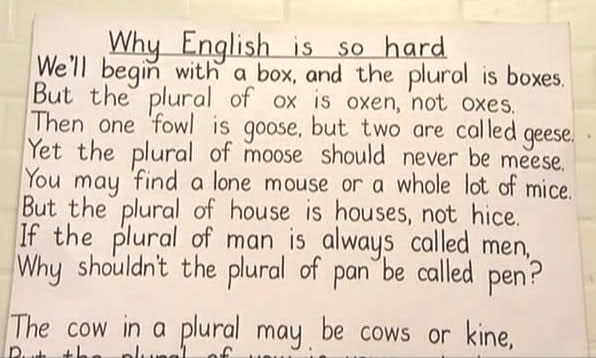 Why English is so hard
We'll begin with a box, and the plural is boxes.
But the plural of ox is oxen, not oxes.
Then one fowl is goose, but two are called geese.
Yet the plural of moose should never be meese.
You may find a lone mouse or a whole lot of mice.
But the plural of house is houses, not hice.
If the plural of man is always called men,
Why shouldn't the plural of pan be called pen?
The cow in a plural may be cows or kine,
But the plural of